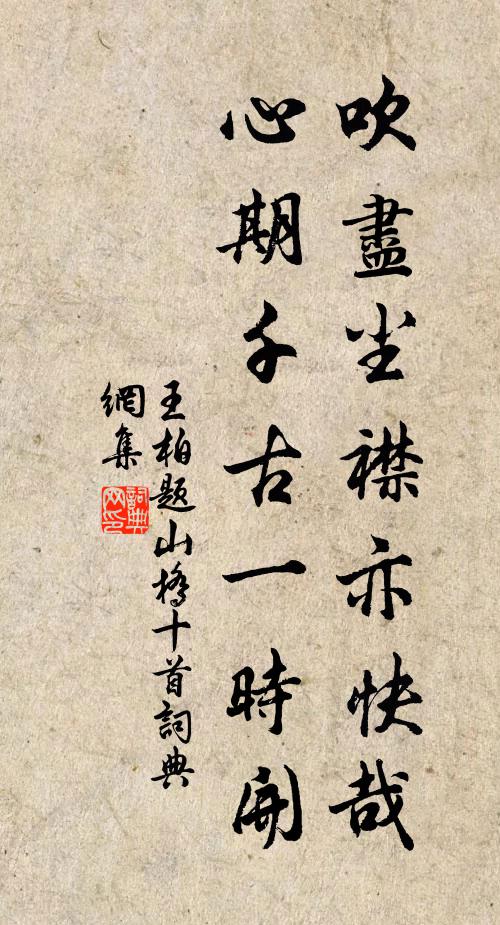 吹盡尘襟亦快哉
心期千古一時開
王柏題山橋十首詞典
網集
詞典
网印